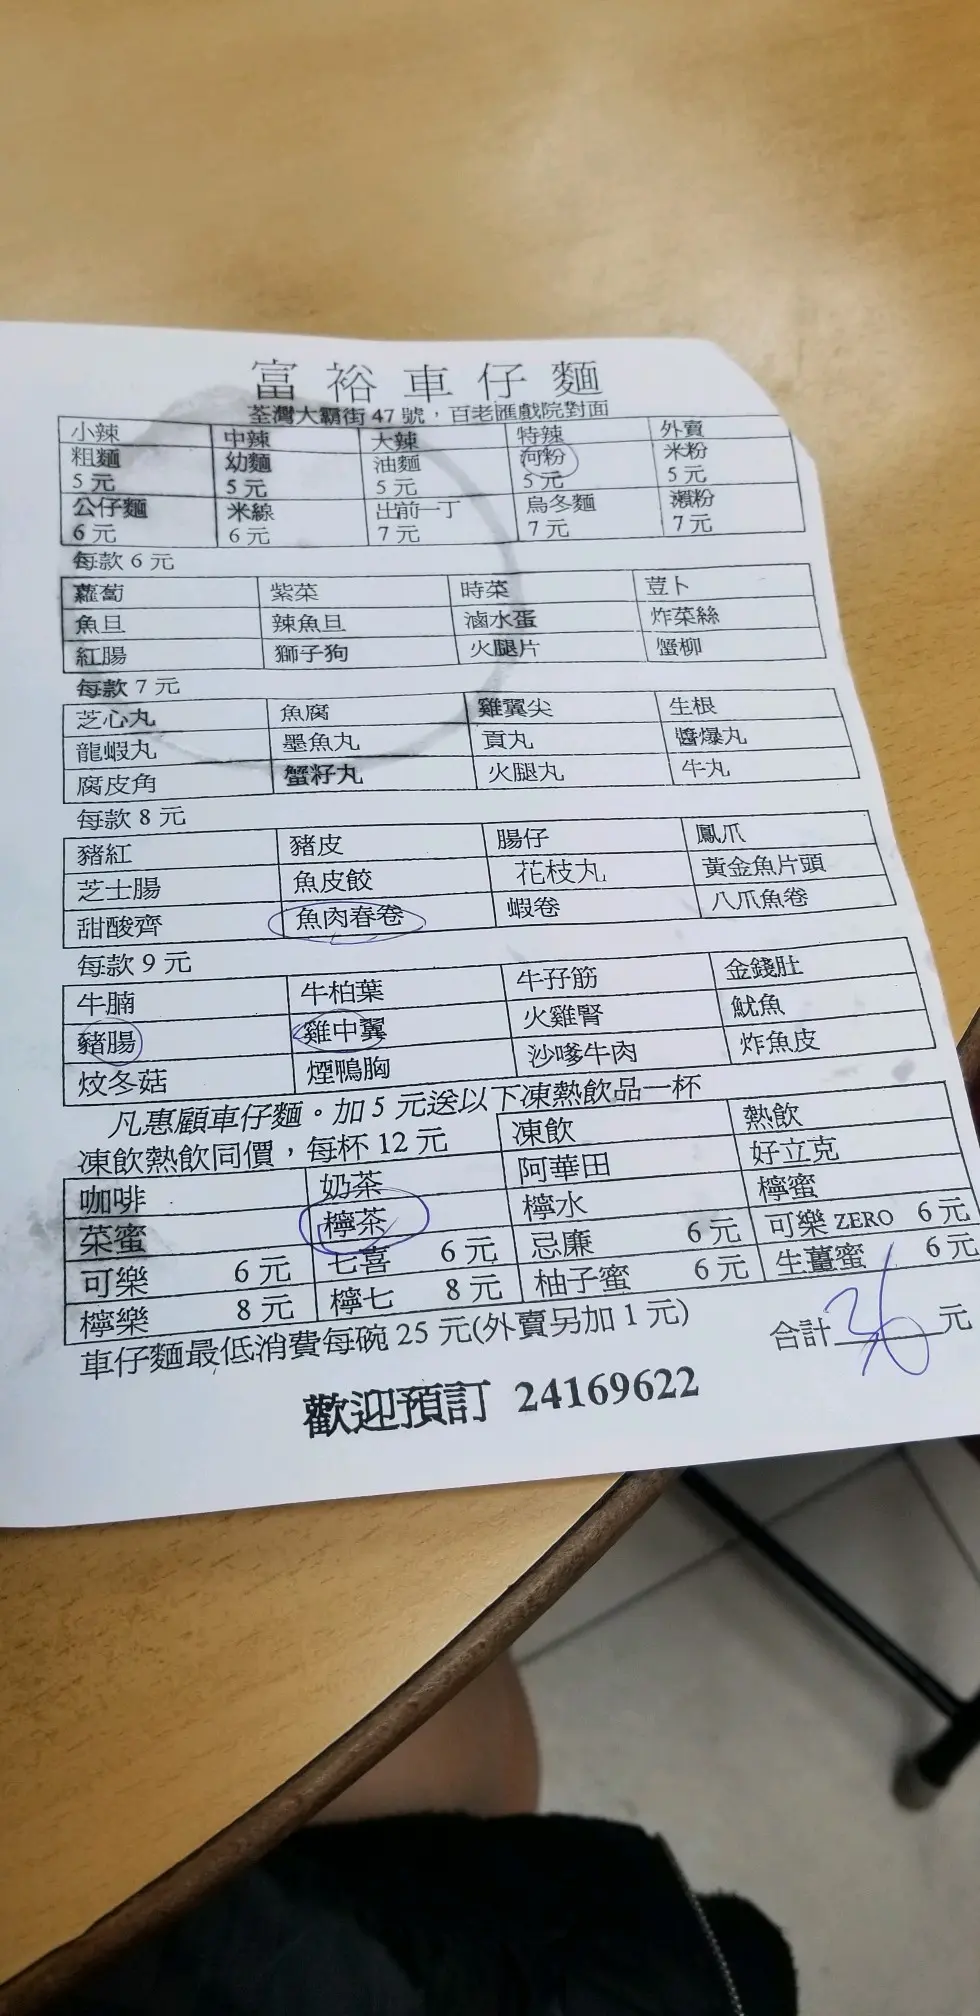 富裕車仔麵
荃灣大霸街 47 號，百老匯戲院對面
小辣 中辣 大辣 特辣 外賣
粗麵 幼麵 油麵 河粉 米粉
5 元 5 元 5 元 5 元 5 元
公仔麵 米線 出前一丁 烏冬麵 瀨粉
6 元 6 元 7 元 7 元 7 元
每款 6 元
蘿蔔 紫菜 時菜 荳卜
魚旦 辣魚旦 滷水蛋 炸菜絲
紅腸 獅子狗 火腿片 蟹柳
每款 7 元
芝心丸 魚腐 雞翼尖 生根
龍蝦丸 墨魚丸 貢丸 醬爆丸
腐皮角 蟹籽丸 火腿丸 牛丸
每款 8 元
豬紅 豬皮 腸仔 鳳爪
芝士腸 魚皮餃 花枝丸 黃金魚片頭
甜酸齊 魚肉春卷 蝦卷 八爪魚卷
每款 9 元
牛腩 牛柏葉 牛孖筋 金錢肚
豬腸 雞中翼 火雞腎 魷魚
炆冬菇 煙鴨胸 沙嗲牛肉 炸魚皮
凡惠顧車仔麵。加 5 元送以下凍熱飲品一杯
凍飲熱飲同價，每杯 12 元 凍飲 熱飲
咖啡 奶茶 阿華田 好立克
菜蜜 檸茶 檸水 檸蜜
可樂 6 元 七喜 6 元 忌廉 6 元 可樂 ZERO 6 元
檸樂 8 元 檸七 8 元 柚子蜜 6 元 生薑蜜 6 元
車仔麵最低消費每碗 25 元(外賣另加 1 元) 合計 36 元
歡迎預訂 24169622